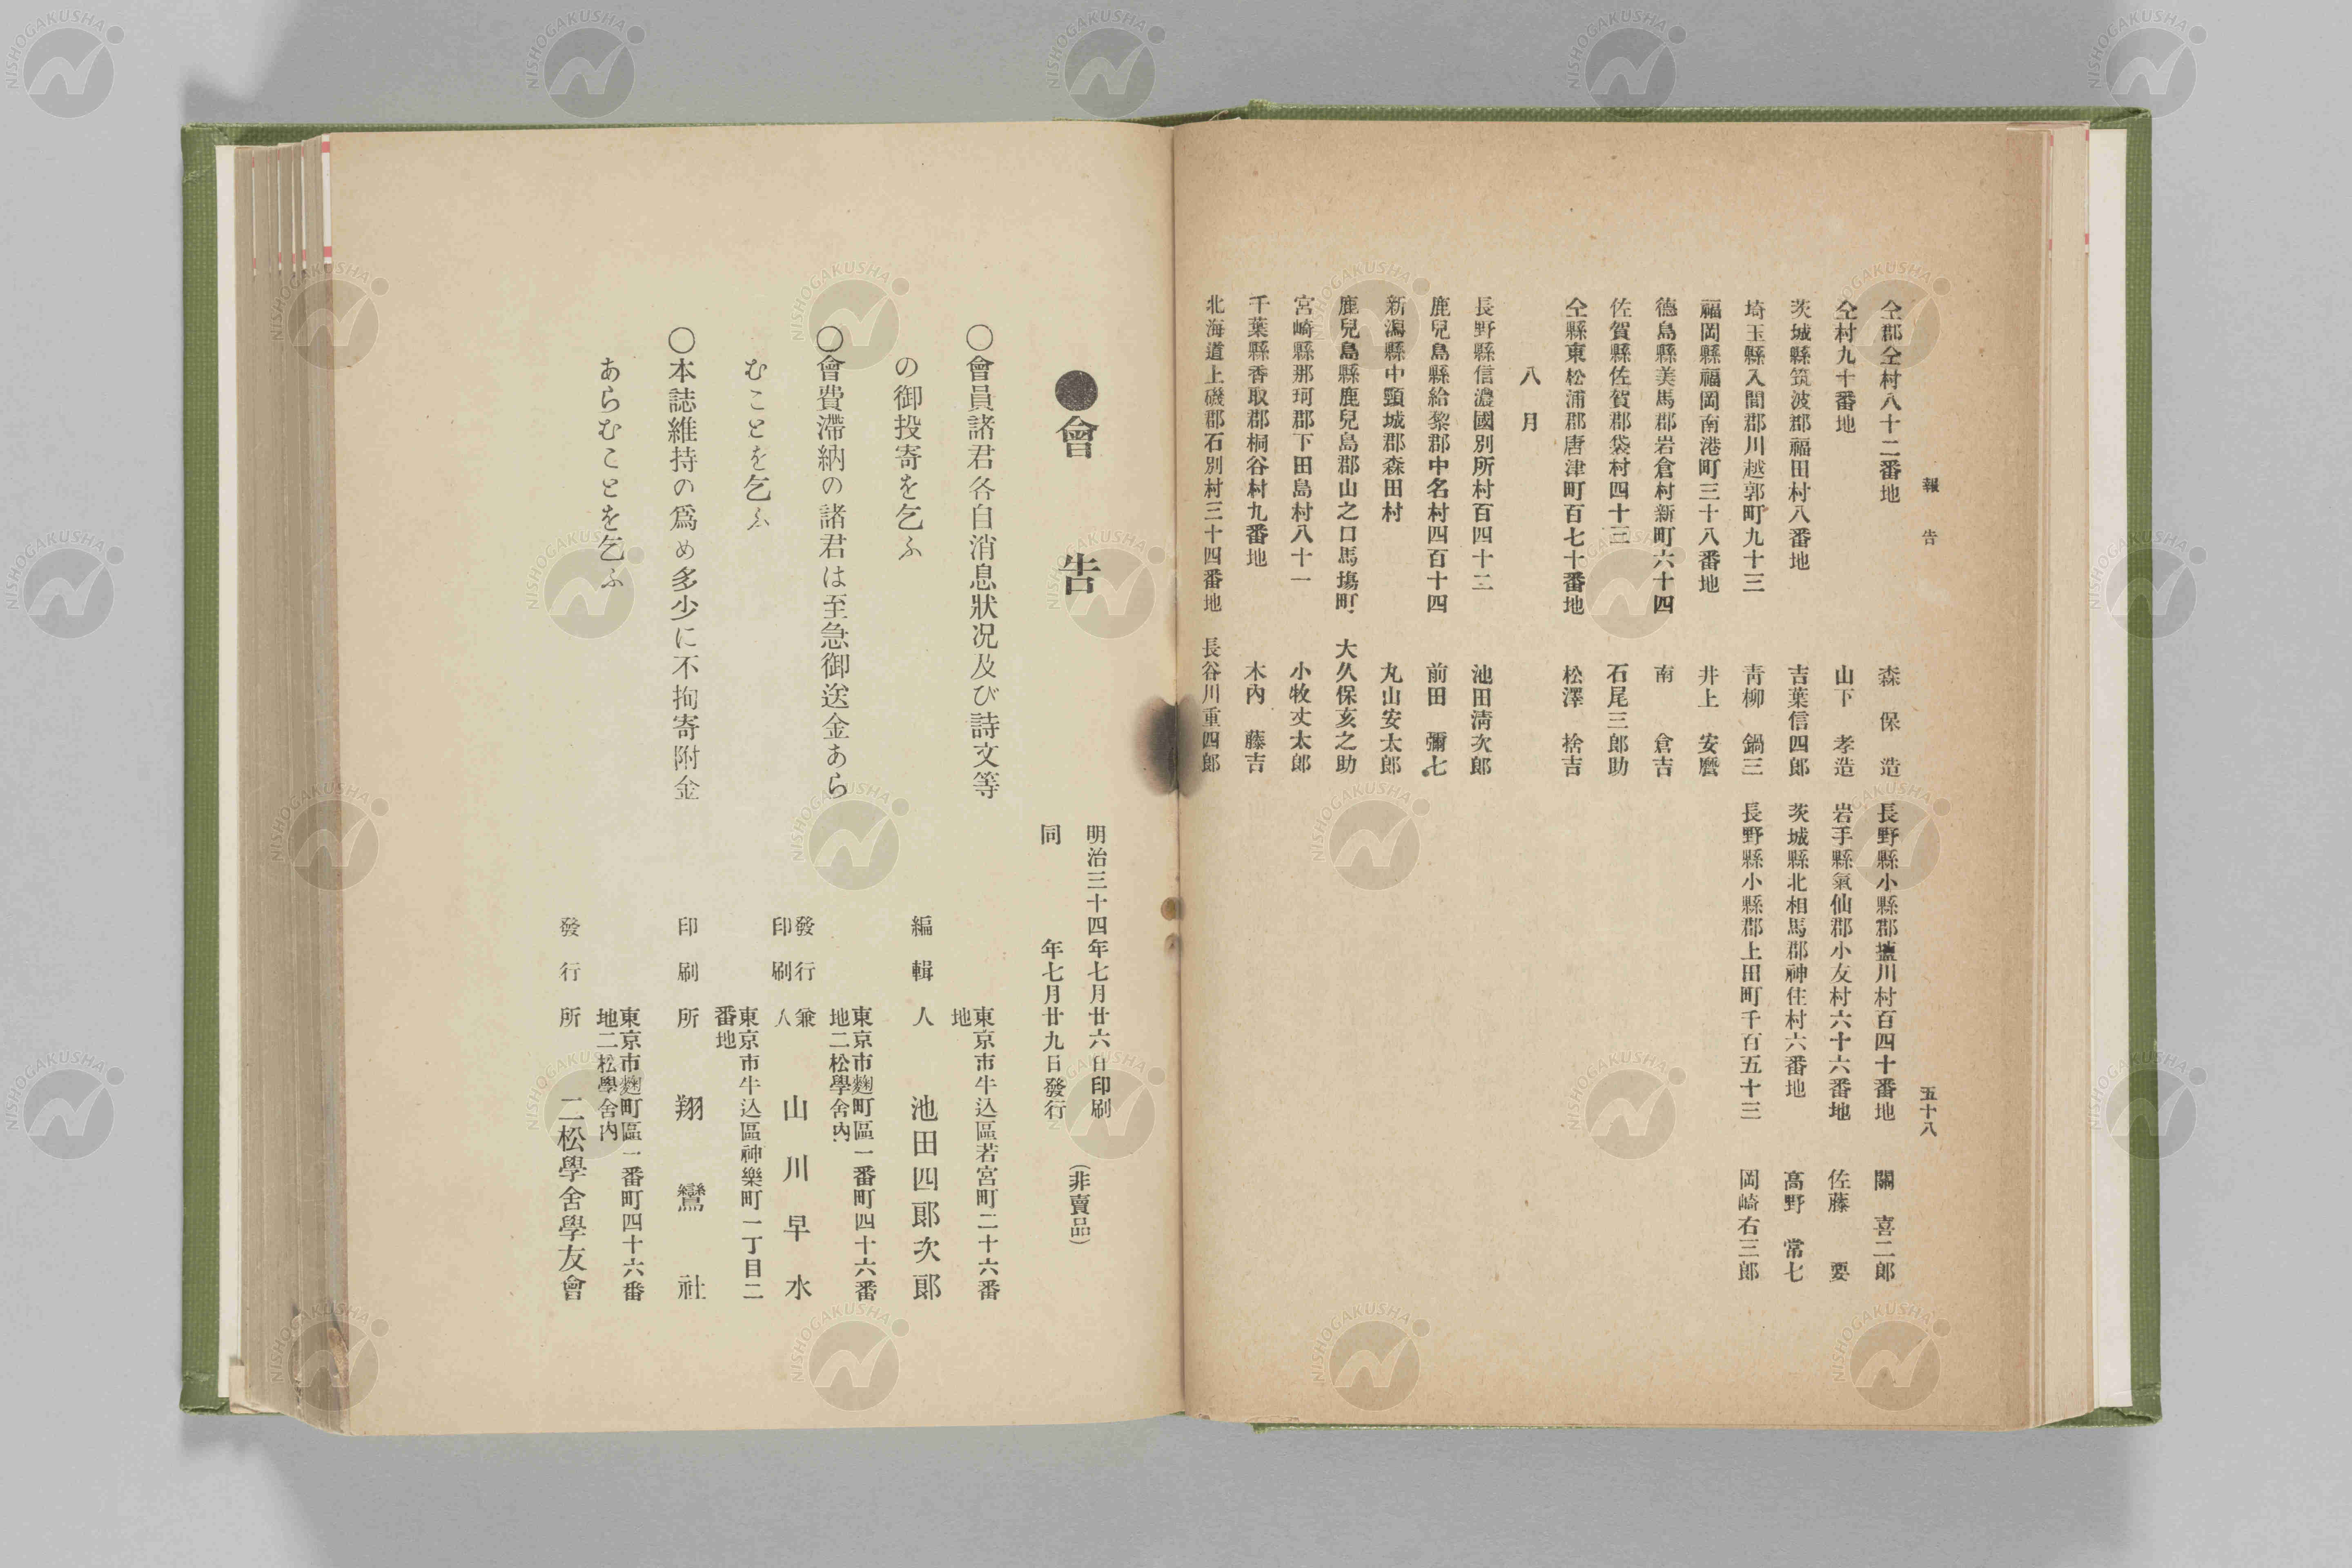 報告
五十八
仝郡仝村八十二番地 森保造
仝村九十番地 山下孝造
茨城縣筑波郡福田村八番地 吉葉信四郎
埼玉縣入間郡川越郭町九十三 靑柳鍋三
福岡縣福岡南港町三十八番地 井上安麿
德島縣美馬郡岩倉村新町六十四 南倉吉
佐賀縣佐賀郡袋村四十三 石尾三郎助
仝縣東松浦郡唐津町百七十番地 松澤捨吉
八月
長野縣信濃國別所村百四十二 池田淸次郎
鹿兒島縣給黎郡中名村四百十四 前田彌七
新潟縣中頸城郡森田村 丸山安太郎
鹿兒島縣鹿兒島郡山之口馬塲町 大久保亥之助
宮崎縣那珂郡下田島村八十一 小牧丈太郎
千葉縣香取郡桐谷村九番地 木內藤吉
北海道上磯郡石別村三十四番地 長谷川重四郎
長野縣小縣郡鹽川村百四十番地 關喜二郎
岩手縣氣仙郡小友村六十六番地 佐藤要
茨城縣北相馬郡神住村六番地 高野常七
長野縣小縣郡上田町千百五十三 岡崎右三郎
●會告
○會員諸君各自消息狀況及び詩文等
の御投寄を乞ふ
○會費滯納の諸君は至急御送金あら
むことを乞ふ
○本誌維持の爲め多少に不拘寄附金
あらむことを乞ふ
明治三十四年七月廿六日印刷
同年七月廿九日發行
(非賣品)
東京市牛込區若宮町二十六番
地
編輯人 池田四郞次郞
東京市麴町區一番町四十六番
地二松學舍內
發行兼
印刷人 山川早水
東京市牛込區神樂町一丁目二
番地
印刷所 翔鸞社
東京市麴町區一番町四十六番
地二松學舍內
發行所 二松學舍學友會
NISHOGAKUSHA